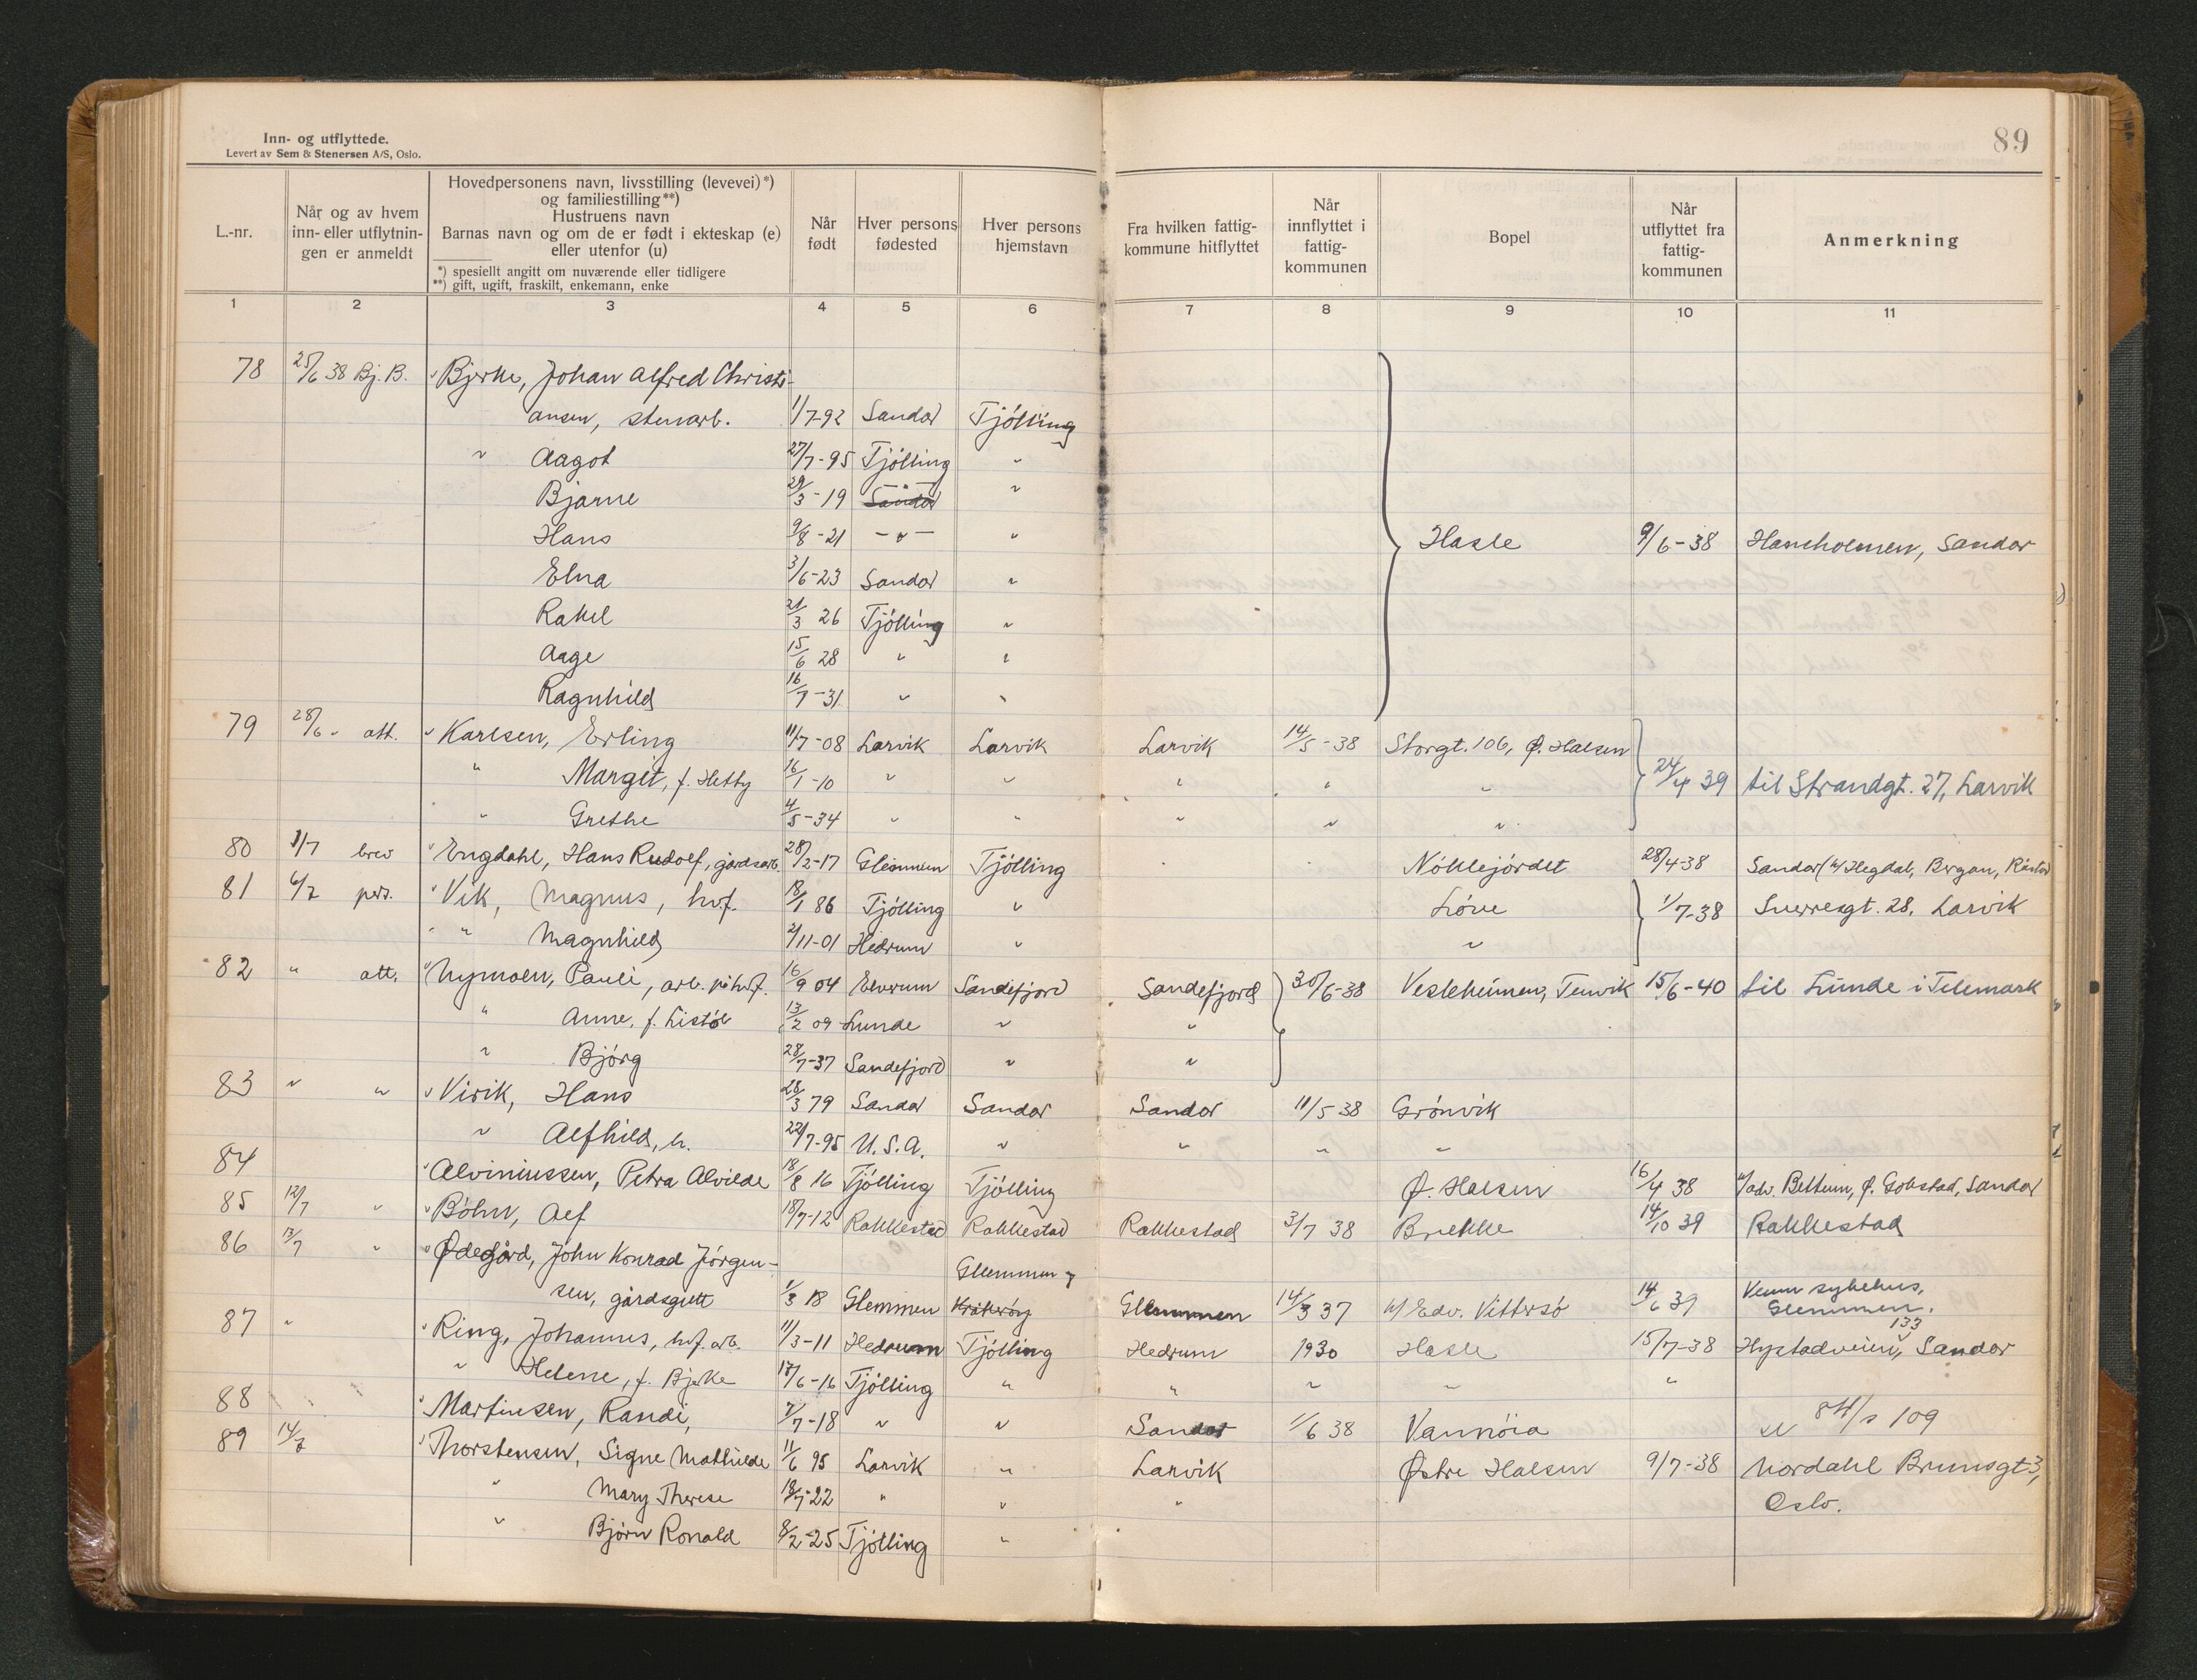 89
Inn- og utflyttede.
Levert av Sem & Stenersen A/S, Oslo.
L.-nr. Når og av hvem inn- eller utflytnin- gen er anmeldt Hovedpersonens navn, livsstilling (levevei)*) og familiestilling**) Hustruens navn Barnas navn og om de er født i ekteskap (e) eller utenfor (u) *) spesielt angitt om nuværende eller tidligere **) gift, ugift, fraskilt, enkemann, enke Når født Hver persons fødested Hver persons hjemstavn Fra hvilken fattig- kommune hitflyttet Når innflyttet i fattig- kommunen Bopel Når utflyttet fra fattig- kommunen Anmerkning
1 2 3 4 5 6 7 8 9 10 11
78 25/6 38 Bj. B. Bjerke, Johan Alfred Christi-
ansen, stenarb. 1/7-92 Sandar Tjölling
" Aagot 27/7-95 Tjölling "
Bjarne 29/3-19 Sandar -"- "
Hans 9/8-21 -"- " Hasle 9/6-38 Haneholmen, Sandar
Elna 3/6-23 Sandar "
Rakel 21/3 26 Tjölling "
Aage 15/6 28 " "
Ragnhild 16/7-31 " "
79 28/6 " att. Karlsen, Erling 11/7-08 Larvik Larvik Larvik 14/5-38 Storgt. 106, Ø. Halsen
" Margit, f. Hetty 16/1-10 " " " " " 24/4 39 til Strandgt. 27, Larvik
" Grethe 4/5-34 " " " " "
80 1/7 brev Engdahl, Hans Rudolf, gårdsarb. 28/2-17 Glemmen Tjölling Nöklejördet 28/4-38 Sandar (h/ Hegdal, Bergan, Råstad
81 6/7 pers. Vik, Magnus, hvf. 18/1 86 Tjölling " Löve 1/7-38 Sverresgt. 28, Larvik
" Magnhild 2/11-01 Hedrum " "
82 " att. Nymoen, Pauli, arb. på hvf. 16/9 04 Elverum Sandefjord Sandefjord 30/6-38 Vesleheimen, Tenvik 15/6-40 til Lunde i Telemark
" Anne, f. Listöl 13/2 09 Lunde " "
" Björg 28/7-37 Sandefjord " "
83 " " Virik, Hans 28/3 79 Sandar Sandar Sandar 11/5 38 Grönvik
" Alfhild, h. 22/7-95 U.S.A. " " " "
84 Alviniussen, Petra Alvilde 18/8 16 Tjölling Tjölling Ø. Halsen 16/4 38 h/adv. Bettum, Ø. Gokstad, Sandar
85 12/7 " Böhn, Alf 18/7-12 Rakkestad Rakkestad Rakkestad 3/7 38 Brekke 14/10 39 Rakkestad
86 13/7 " Ødegård, John Konrad Jörgen-
sen, gårdsgutt 1/3 18 Glemmen Kråkeröy Glemmen Glemmen 14/3 37 h/ Edv. Vittersö 14/6 39 Veum sykehus, Glemmen.
87 " Ring, Johannes, hvf. arb. 11/3-11 Hedrum Tjölling Hedrum 1930 Hasle 15/7-38 Hystadveien 133, Sandar
" Helene, f. Bjerke 17/6-16 Tjölling " " " " "
88 Martinsen, Randi, 7/7-18 " " Sandar 1/6 38 Vannöia 84/s 109
89 14/7 Thorstensen, Signe Mathilde 11/6 95 Larvik " Larvik Østre Halsen 9/7-38 Nordahl Brunsgt. 3,
" Mary Therese 18/7-22 " " " Oslo.
" Björn Ronald 8/2-25 Tjölling "